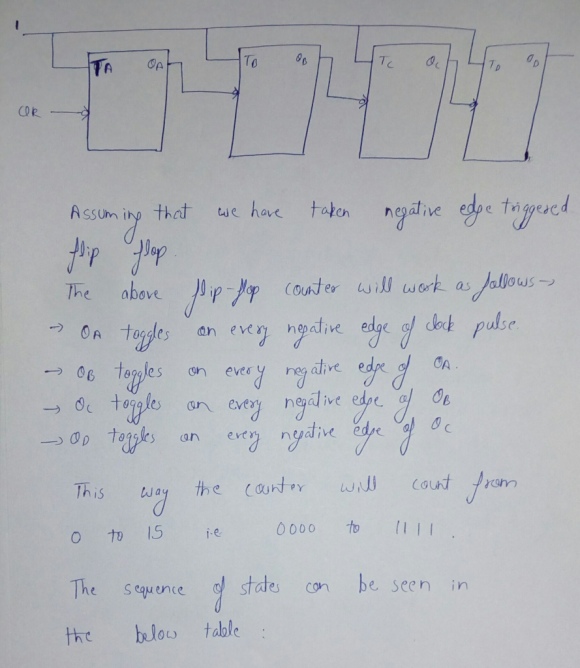 1
TA QA TB QB TC QC TD QD
CLK
Assuming that we have taken negative edge triggered
flip flop.
The above flip-flop counter will work as follows→
→ QA toggles on every negative edge of clock pulse.
→ QB toggles on every negative edge of QA.
→ QC toggles on every negative edge of QB
→ QD toggles on every negative edge of QC
This way the counter will count from
0 to 15 i.e 0000 to 1111.
The sequence of states can be seen in
the below table :